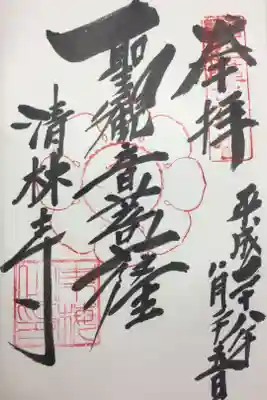 奉拝
平成二十八年
八月二十五日
聖觀音菩薩
清林寺